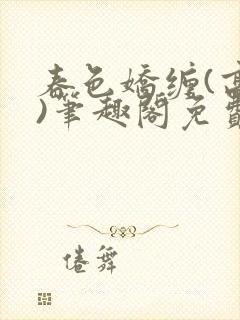 春色嬌纏(高
)筆趣閣免費
倦舞